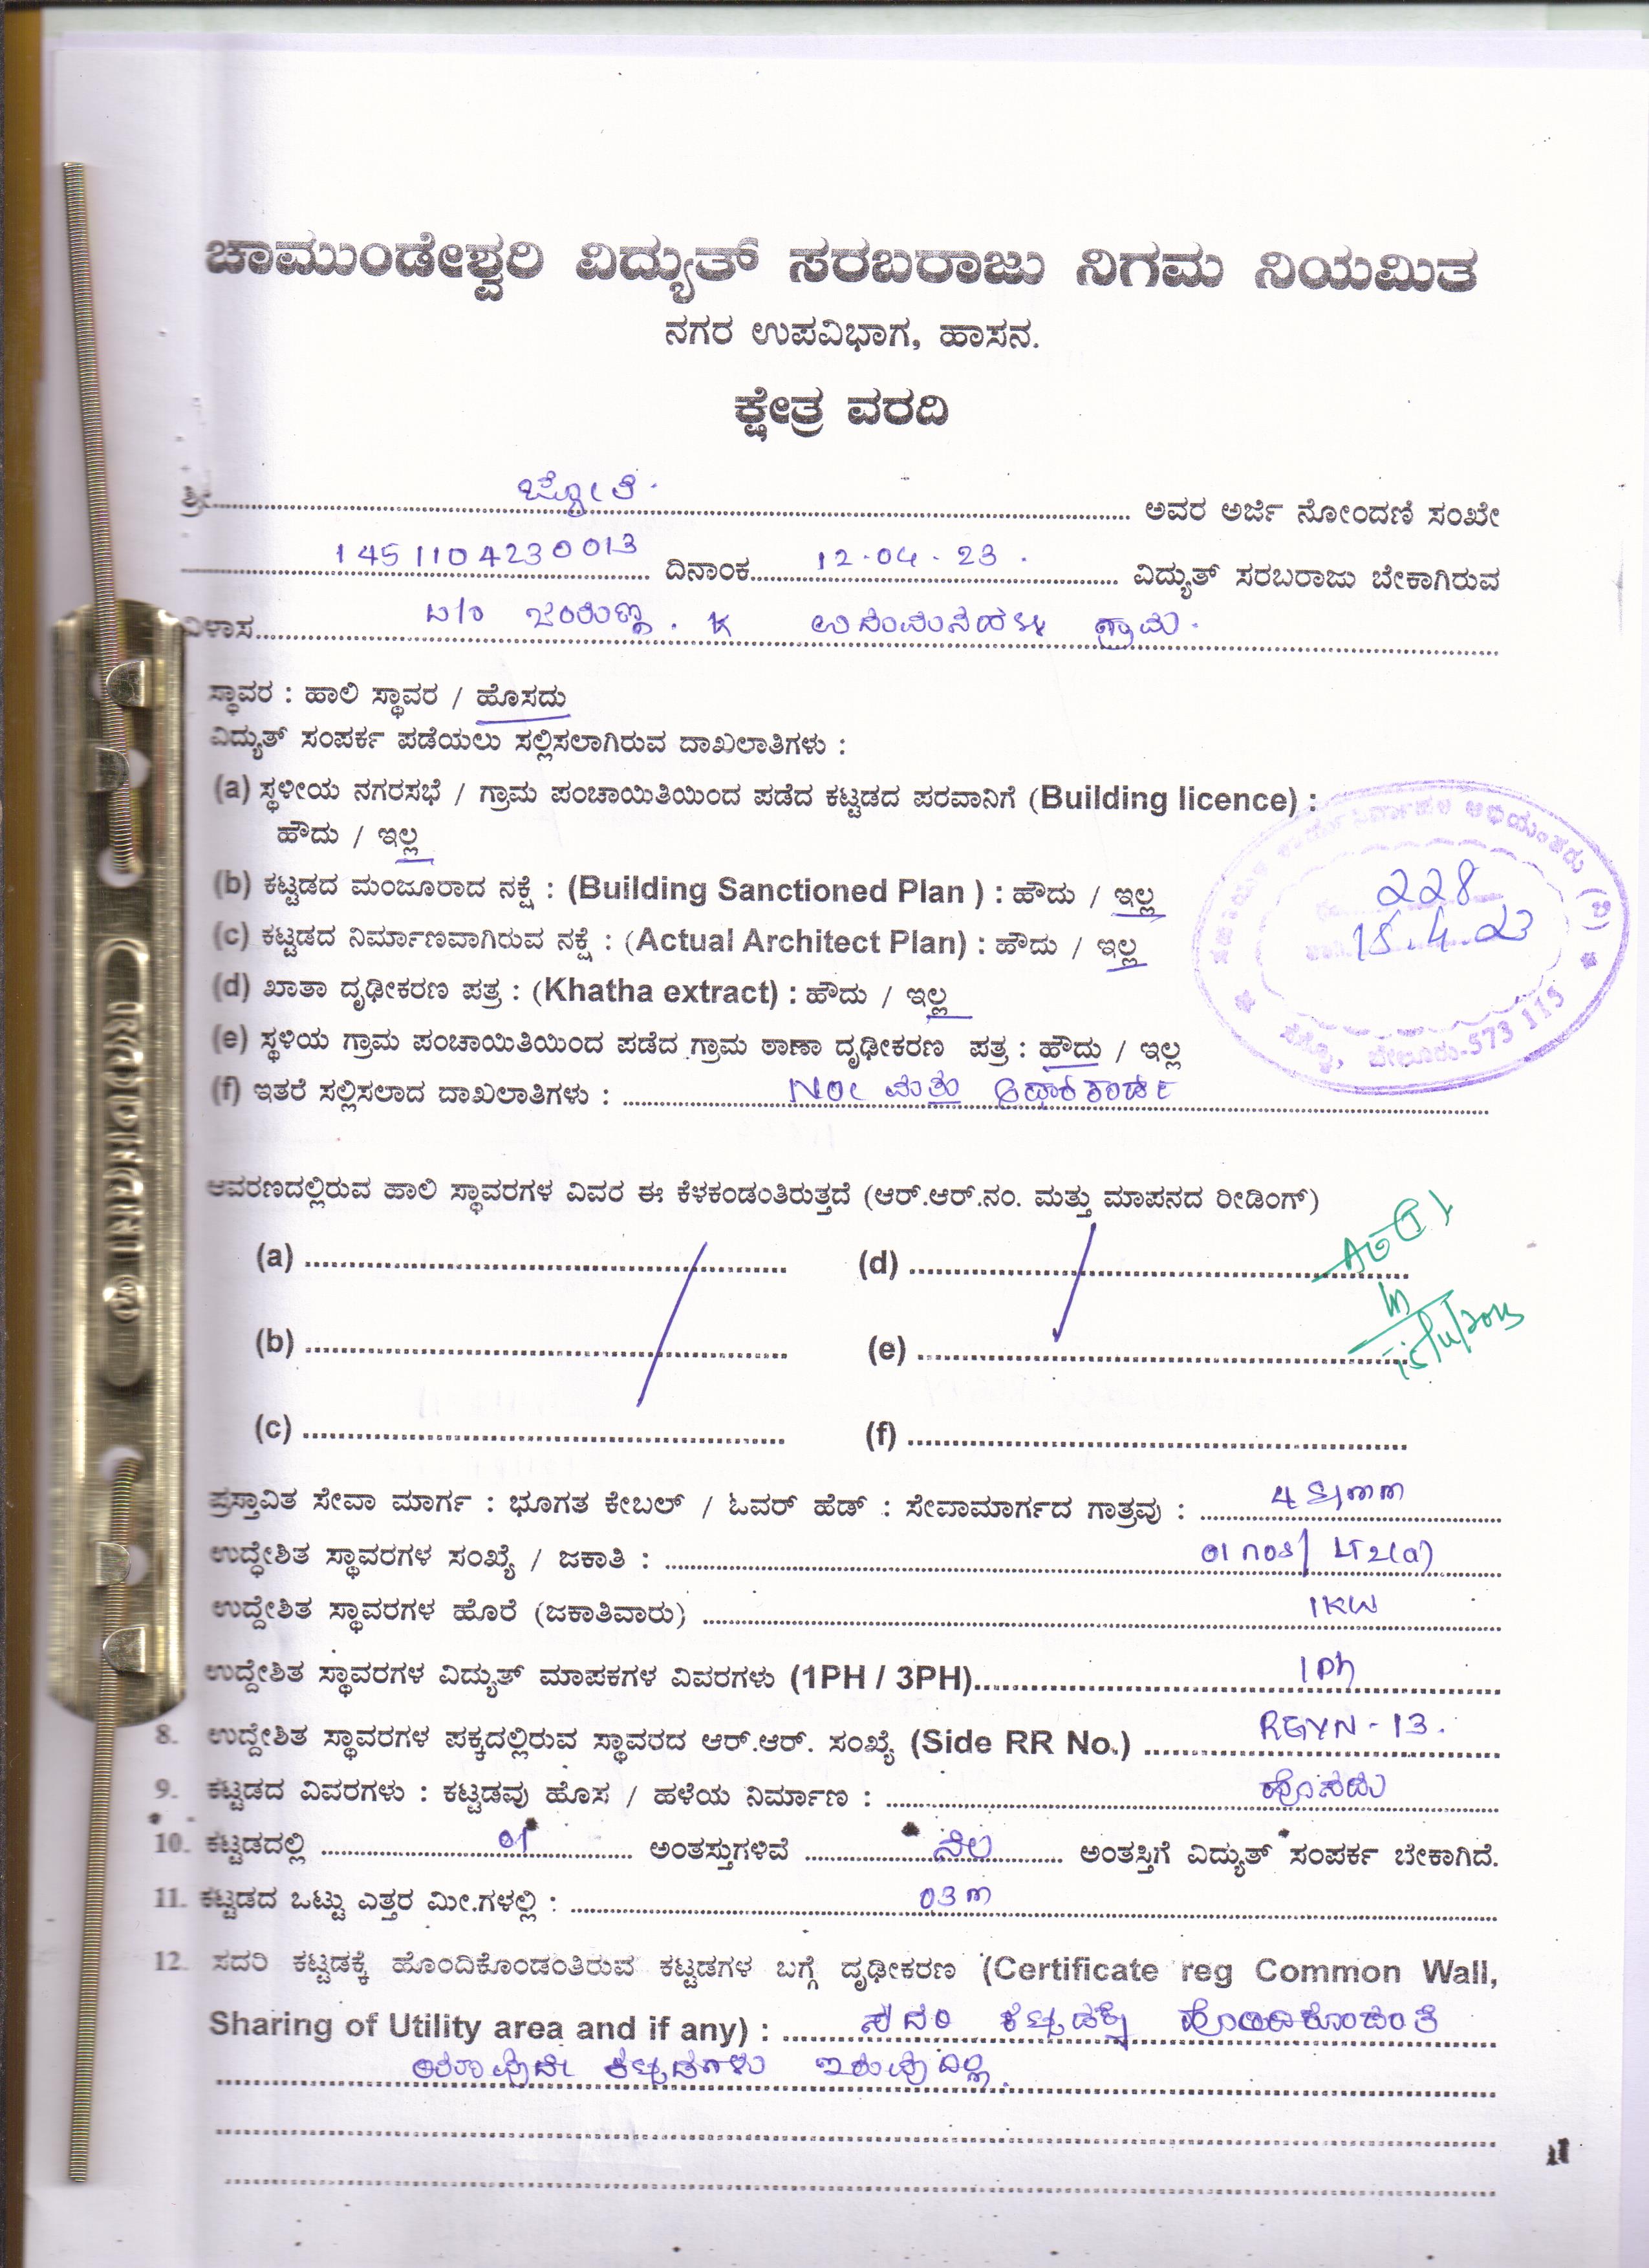 ಚಾಮುಂಡೇಶ್ವರಿ ವಿದ್ಯುತ್ ಸರಬರಾಜು ನಿಗಮ ನಿಯಮಿತ
ನಗರ ಉಪವಿಭಾಗ, ಹಾಸನ.
ಕ್ಷೇತ್ರ ವರದಿ
ಶ್ರೀ ಜ್ಯೋತಿ. ಅವರ ಅರ್ಜಿ ನೋಂದಣಿ ಸಂಖೇ
1451104230013 ದಿನಾಂಕ 12-04-23. ವಿದ್ಯುತ್ ಸರಬರಾಜು ಬೇಕಾಗಿರುವ
ವಿಳಾಸ ಜಯಣ್ಣ. K ಗ್ರಾಮ.
ಸ್ಥಾವರ : ಹಾಲಿ ಸ್ಥಾವರ / ಹೊಸದು
ವಿದ್ಯುತ್ ಸಂಪರ್ಕ ಪಡೆಯಲು ಸಲ್ಲಿಸಲಾಗಿರುವ ದಾಖಲಾತಿಗಳು :
(a) ಸ್ಥಳೀಯ ನಗರಸಭೆ / ಗ್ರಾಮ ಪಂಚಾಯಿತಿಯಿಂದ ಪಡೆದ ಕಟ್ಟಡದ ಪರವಾನಿಗೆ (Building licence) :
ಹೌದು / ಇಲ್ಲ
(b) ಕಟ್ಟಡದ ಮಂಜೂರಾದ ನಕ್ಷೆ : (Building Sanctioned Plan ) : ಹೌದು / ಇಲ್ಲ
(c) ಕಟ್ಟಡದ ನಿರ್ಮಾಣವಾಗಿರುವ ನಕ್ಷೆ : (Actual Architect Plan) : ಹೌದು / ಇಲ್ಲ
(d) ಖಾತಾ ದೃಢೀಕರಣ ಪತ್ರ : (Khatha extract) : ಹೌದು / ಇಲ್ಲ
(e) ಸ್ಥಳಿಯ ಗ್ರಾಮ ಪಂಚಾಯಿತಿಯಿಂದ ಪಡೆದ ಗ್ರಾಮ ಠಾಣಾ ದೃಢೀಕರಣ ಪತ್ರ : ಹೌದು / ಇಲ್ಲ
(f) ಇತರೆ ಸಲ್ಲಿಸಲಾದ ದಾಖಲಾತಿಗಳು : NOC ಮತ್ತು ಆಧಾರ ಕಾರ್ಡ
228
15.4.23
ಬೇಲೂರು-573 115
ಆವರಣದಲ್ಲಿರುವ ಹಾಲಿ ಸ್ಥಾವರಗಳ ವಿವರ ಈ ಕೆಳಕಂಡಂತಿರುತ್ತದೆ (ಆರ್.ಆರ್.ನಂ. ಮತ್ತು ಮಾಪನದ ರೀಡಿಂಗ್)
(a) (d)
(b) (e)
(c) (f)
ಪ್ರಸ್ತಾವಿತ ಸೇವಾ ಮಾರ್ಗ : ಭೂಗತ ಕೇಬಲ್ / ಓವರ್ ಹೆಡ್ : ಸೇವಾಮಾರ್ಗದ ಗಾತ್ರವು :
ಉದ್ಧೇಶಿತ ಸ್ಥಾವರಗಳ ಸಂಖ್ಯೆ / ಜಕಾತಿ : 01 nos/ LT2(a)
ಉದ್ದೇಶಿತ ಸ್ಥಾವರಗಳ ಹೊರೆ (ಜಕಾತಿವಾರು) 1KW
ಉದ್ದೇಶಿತ ಸ್ಥಾವರಗಳ ವಿದ್ಯುತ್ ಮಾಪಕಗಳ ವಿವರಗಳು (1PH / 3PH) 1Ph
8. ಉದ್ದೇಶಿತ ಸ್ಥಾವರಗಳ ಪಕ್ಕದಲ್ಲಿರುವ ಸ್ಥಾವರದ ಆರ್.ಆರ್. ಸಂಖ್ಯೆ (Side RR No.) RGYN-13.
9. ಕಟ್ಟಡದ ವಿವರಗಳು : ಕಟ್ಟಡವು ಹೊಸ / ಹಳೆಯ ನಿರ್ಮಾಣ : ಹೊಸದು
10. ಕಟ್ಟಡದಲ್ಲಿ 01 ಅಂತಸ್ತುಗಳಿವೆ ನೆಲ ಅಂತಸ್ತಿಗೆ ವಿದ್ಯುತ್ ಸಂಪರ್ಕ ಬೇಕಾಗಿದೆ.
11. ಕಟ್ಟಡದ ಒಟ್ಟು ಎತ್ತರ ಮೀ.ಗಳಲ್ಲಿ : 03m
12. ಸದರಿ ಕಟ್ಟಡಕ್ಕೆ ಹೊಂದಿಕೊಂಡಂತಿರುವ ಕಟ್ಟಡಗಳ ಬಗ್ಗೆ ದೃಢೀಕರಣ (Certificate reg Common Wall,
Sharing of Utility area and if any) : ಸದರಿ ಕಟ್ಟಡಕ್ಕೆ ಹೊಂದಿಕೊಂಡಂತೆ
ಯಾವುದೇ ಕಟ್ಟಡಗಳು ಇರುವುದಿಲ್ಲ.